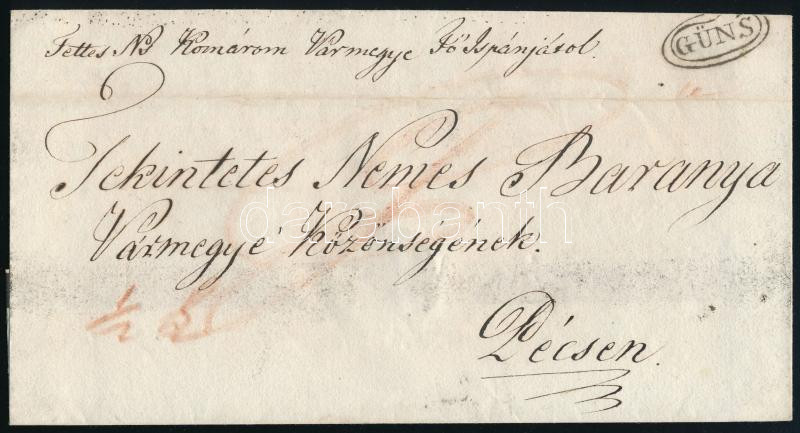 Tettes Ns Komárom Vármegye Fő Ispánjátol.
GÜNS
Tekintetes Nemes Baranya
Vármegye Közönségének.
Pécsen.
darabanth